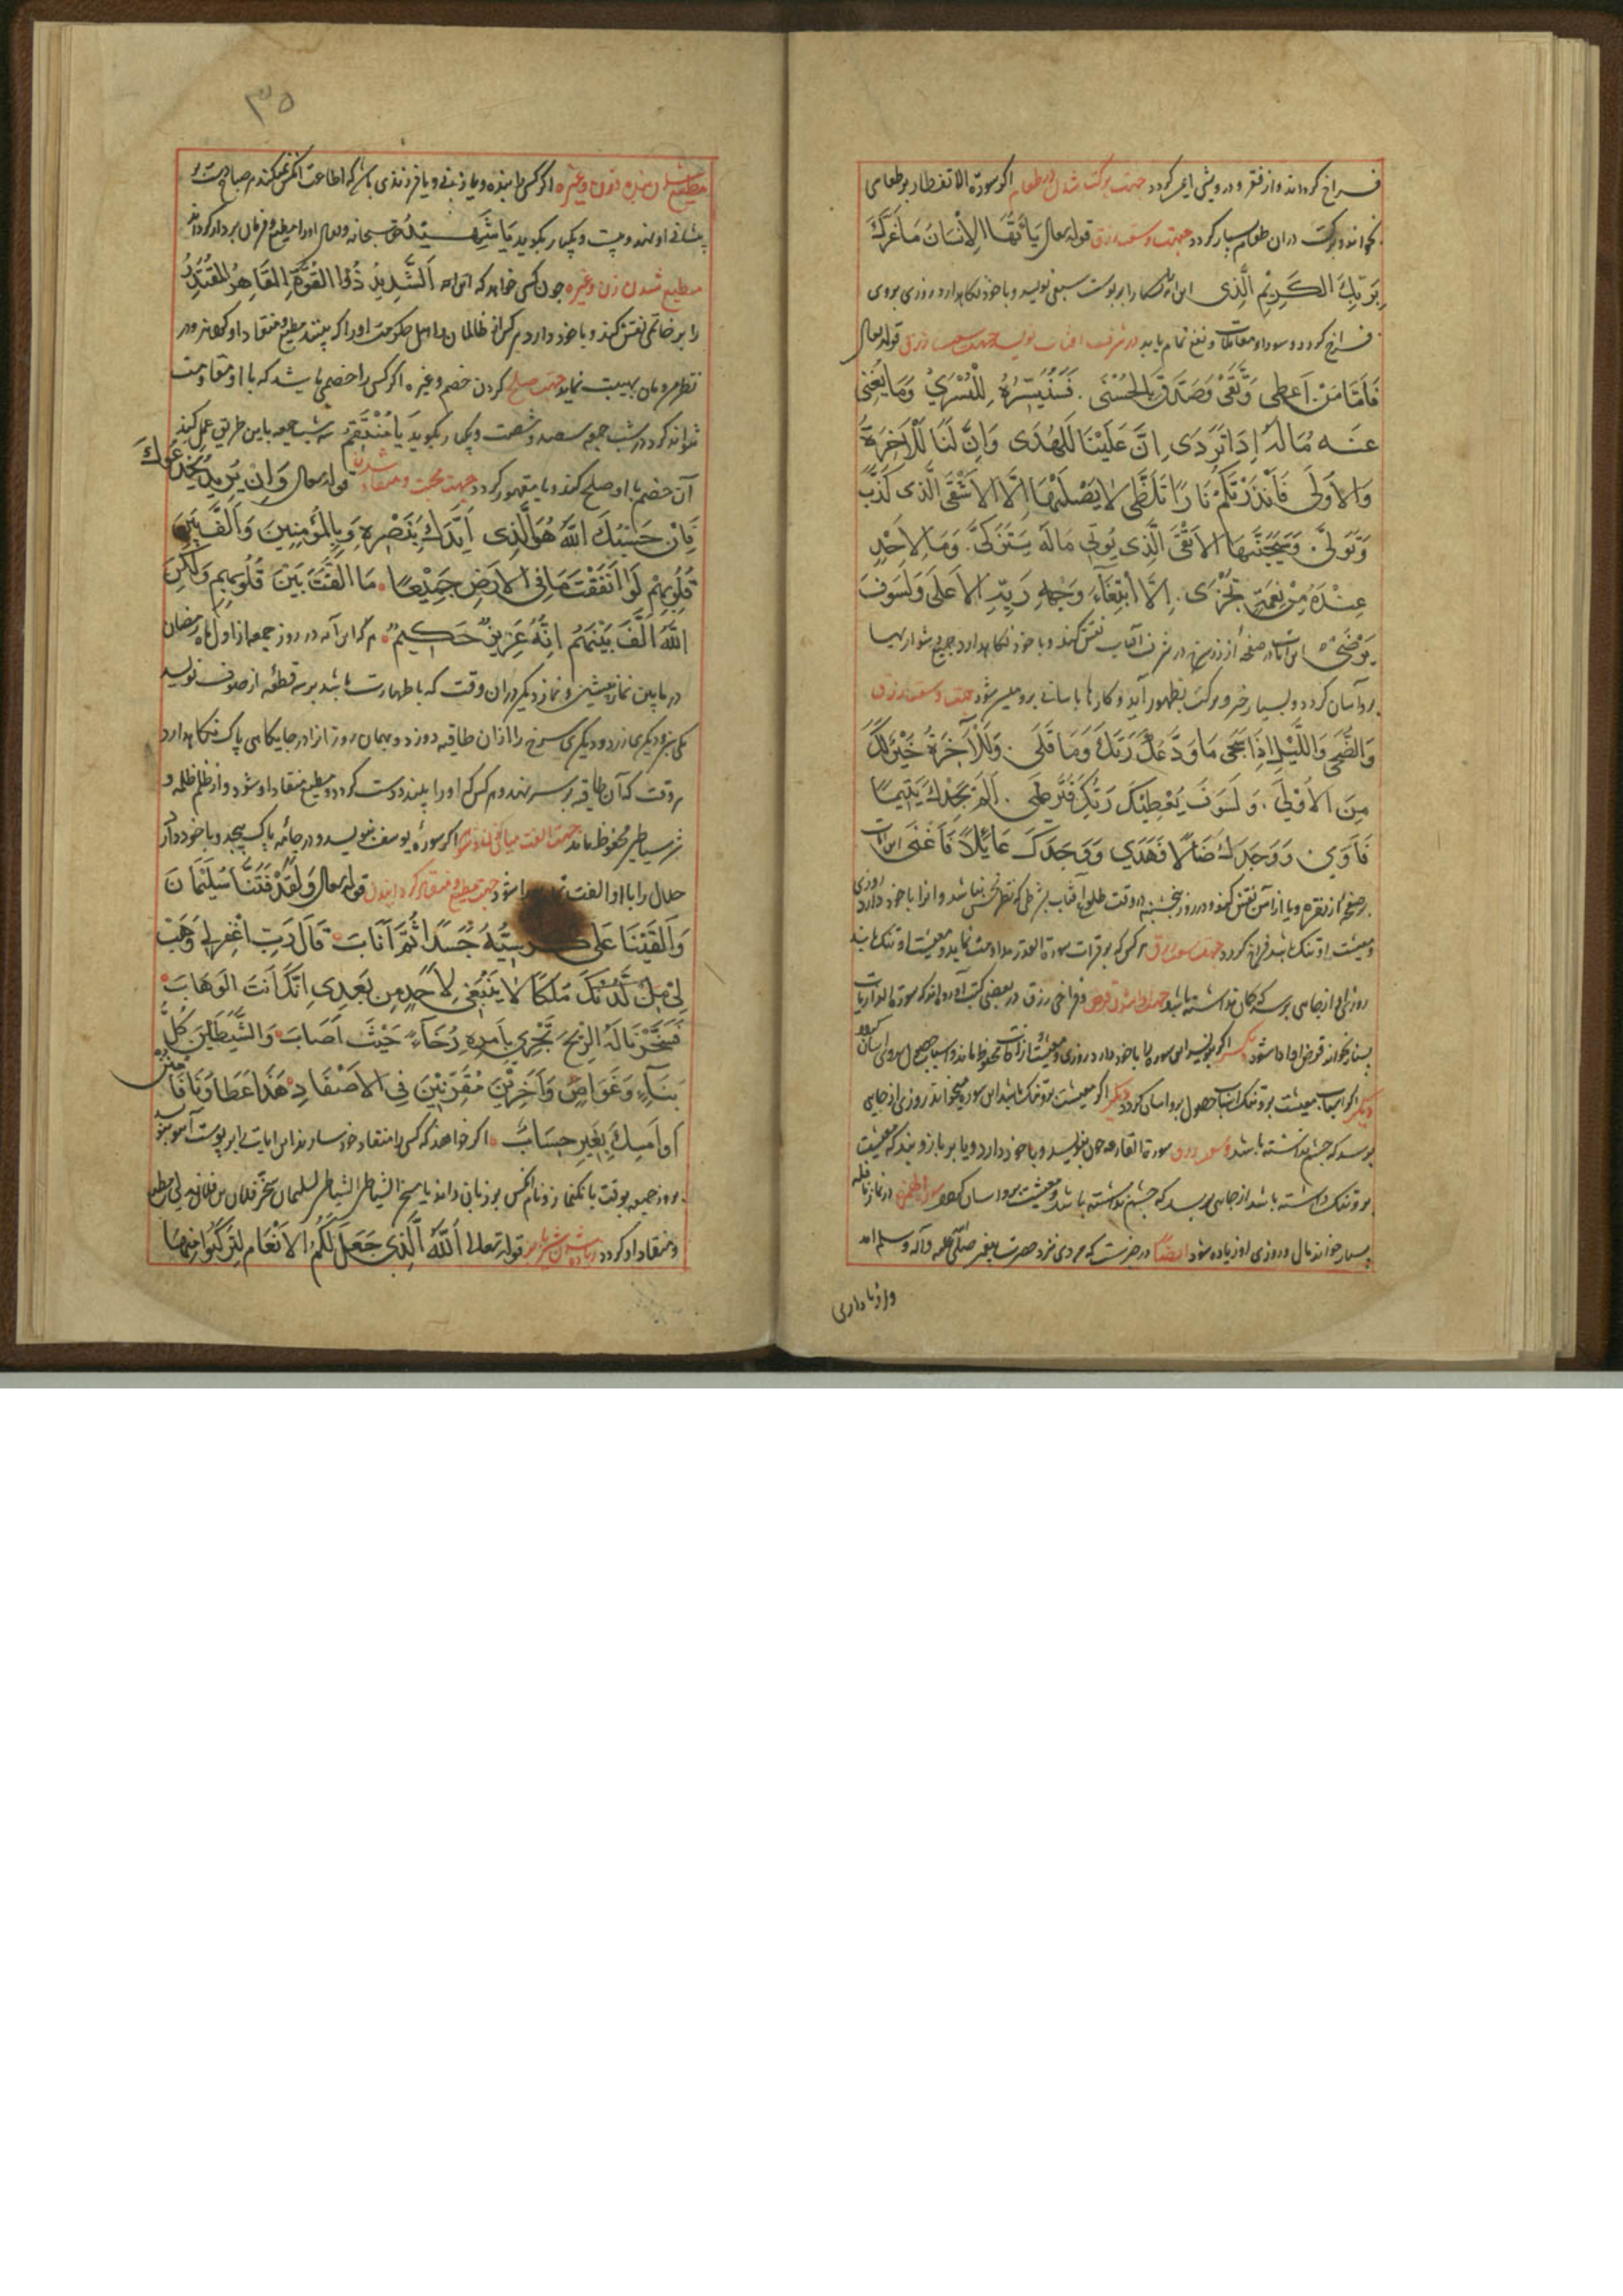 فراخ گرداند و از فقر و درویشی ایمن گردد جهت برکت شدن در طعام اگر سورة الانفطار بر طعامی
بخواند برکت در آن طعام بسیار گردد جهت وسعت رزق قوله تعالی یَا أَیُّهَا الْإِنْسَانُ مَا غَرَّكَ
بِرَبِّكَ الْكَرِیْمِ الَّذِی این را بر پوست بنویسد و با خود نگاهدارد روزی بر وی
فراخ گردد و سود و معاملات و نفع تمام یابد در شرف آفتاب نویسد جهت وسعت رزق قوله تعالی
فَاَمَّا مَنْ اَعْطَی وَتَّقَیْ وَصَدَّقَ بِالْحُسْنَی فَسَنُیَسِّرُهُ لِلْیُسْرَیْ وَمَا یُغْنِی
عَنْهُ مَالُهُ اِذَا تَرَدَی اِنَّ عَلَیْنَا لَلهُدَی وَاِنَّ لَنَا لَلْاَخِرَةُ
وَالْاُولَی فَاَنْذَرْتُكُمْ نَارًا تَلَظَّی لَا یَصْلَیهَا اِلَّا الْاَشْقَی الَّذی كَذَّبَ
وَتَوَلَّی وَسَیُجَنَّبُهَا الْاَتْقَی الَّذِی یُوتِی مَالَهُ یَتَزَكَّی وَمَا لِاَحَدٍ
عِنْدَهُ مِنْ نِعْمَةٍ تُجْزَی اِلَّا ابْتِغَاءَ وَجْهِ رَبِّهِ الْاَعلَی وَلَسَوْفَ
یَرْضَی این آیات در صفحه از زر سرخ در شرف آفتاب نقش کند و با خود نگاهدارد جمیع دشوارها
بر و آسان گردد و بسیار خیر و برکت بظهور آید و کارها بآسانی برو میسر شود جهت وسعت رزق
وَالضُّحَی وَاللَّیْلِ اِذَا سَجَی مَا وَدَّعَكَ رَبُّكَ وَمَا قَلَی وَلَلْآخِرَةُ خَیْرٌ لَكَ
مِنَ الْاُوْلَی وَلَسَوْفَ یُعْطِیْكَ رَبُّكَ فَتَرْضَی اَلَمْ یَجِدْكَ یَتِیْمًا
فَاَوَی وَوَجَدَكَ ضَالًا فَهَدَی وَوَجَدَكَ عَائِلًا فَاَغْنَی این آیات
بر صفحه از نقره و یا از آهن نقش کند در روز پنجشنبه در وقت طلوع آفتاب بشرطی که نظر نحس نباشد و آنرا با خود دارد روزی
و معیشت او تنگ باشد فراخ گردد جهت وسعت رزق هر کس که بر قرات سورة القدر مداومت نماید و معیشت او تنگ باشد
روزی او از جایی برسد که گمان نداشته باشد جهت ادا شدن قرض و فراخی رزق در بعضی کتب آورده اند که سورة الذاریات
بسیار بخواند قرض او ادا شود دیگر اگر بنویسد این سوره را با خود دارد روزی و معیشت از آفات محفوظ ماند و اسباب حصول بر وی آسان گردد
دیگر اگر اسباب معیشت برو تنگ باشد حصول برو آسان گردد دیگر اگر معیشت برو تنگ باشد این سوره میخواند روزی از جایی
برسد که چشم نداشته باشد وسعت رزق سورة القارعه چون بنویسد و با خود دارد و یا بر بازو بندد که معیشت
برو تنگ داشته باشد از جایی برسد که چشم نداشته باشد و معیشت برو آسان در نماز نافله
بسیار خواند مال و روزی او زیاده شود ایضا در خبرست که مردی نزد حضرت پیغمبر صلی الله علیه و آله و سلم آمد
و از ناداری
۳۵
مطیع شدن بنده و زن و غیره اگر کسی را بنده و یا زنی و یا فرزندی باشد که اطاعت آنکس نمیکند هر صباح دست بر
پیشانی او نهد و بیست و یکبار بگوید یَا شَهِیْدُ حق سبحانه و تعالی او را مطیع و فرمان بردار گرداند
مطیع شدن زن و غیره چون کسی خواهد که این اسم اَلشَّدِیدُ ذُو الْقُوَّةِ الْقَاهِرُ الْمُقْتَدِرُ
را بر خاتمی نقش کند و با خود دارد هر کس از ظالمان و اهل حکومت او را که بیند مطیع و منقاد او گردند و در
نظر مردمان بهیبت نماید جهت صلح کردن خصم و غیره اگر کسی را خصمی باشد که با او مقاومت
نتواند کرد در شب جمعه سیصد و شصت و یکبار بگوید یَا مُنْتَقِمُ سه شب جمعه باین طریق عمل کند
آن خصم با او صلح کند و یا مقهور گردد جهت محبت و منقاد شدن قوله تعالی وَاِنْ یُرِیدُ یَخْدَعُوكَ
فَاِنَّ حَسْبُكَ اللّٰهُ هُوَ الَّذِی اَیَّدَكَ بِنَصْرِهِ وَبِالْمُؤمِنِینَ وَاَلَّفَ بَیْنَ
قُلُوبِهِمْ لَوْ اَنْفَقْتَ مَا فِی الْاَرْضِ جَمِیْعًا مَا اَلَّفْتَ بَیْنَ قُلُوبِهِمْ وَلَكِنَ
اللّٰهَ اَلَّفَ بَیْنَهُمْ اِنَّهُ عَزِیزٌ حَكِیمٌ هر که این آیه در روز جمعه از اول ماه رمضان
در مابین نماز پیشین و نماز دیگر در آن وقت که با طهارت باشد بر سه قطعه از صوف نویسد
یکی سبز و دیگری زرد و دیگری سرخ را از آن طاقیه دوزد و بهمان روز آنرا در جایگاهی پاک نگاهدارد
هر وقت که آن طاقیه بر سر نهد هر کس که او را بیند دوست گردد و مطیع و منقاد او شود و از ظلم ظلمه و
شر شیاطین محفوظ ماند جهت الفت میان اگر سورهٔ یوسف بنویسد و در جامهٔ پاک پیچد و با خود دارد
حلال را با او الفت شود جهت مطیع و منقاد گردانیدن قوله تعالی وَلَقَدْ فَتَنَّا سُلَیْمَانَ
وَاَلْقَیْنَا عَلَی كُرْسِیِّهُ جَسَدًا ثُمَّ اَنَابَ قَالَ رَبِّ اغْفِرْ لِی وَهَبْ
لِیْ مِنْ لَدُنْكَ مُلْكًا لَا یَنْبَغِیْ لِاَحَدٍ مِنْ بَعْدِی اِنَّكَ اَنْتَ الْوَهَابَ
فَسَخَّرْنَا لَهُ الرِّیْحَ تَجْرِیْ بِاَمْرِهِ رُخَآءً حَیْثَ اَصَابَ وَالشَّیَطَینَ كُلَّ
بَنَّآءٍ وَغَوَاصٍ وَاَخَرِیْنَ مُقَرَّنِیْنَ فِی الْاَصْفَادِ هَذَا عَطَاوُنَا فَامْنُنْ
اَوْ اَمْسِكْ بِغَیْرِ حِسَابٍ اگر خواهد که کسی را منقاد خود سازد این آیات بر پوست آهو بنویسد
بروز جمعه بوقت بانگ نماز و نام آنکس بر زبان راند یا مسخر الشیاطین لسلیمان سخر فلان بن فلان لی مطیع
و منقاد او گردد زیاده شدن شیر قوله تعالی اَللّٰهُ الَّذِی جَعَلَ لَكُمُ الْاَنْعَامَ لِتَرْكَبُوا مِنْهَا